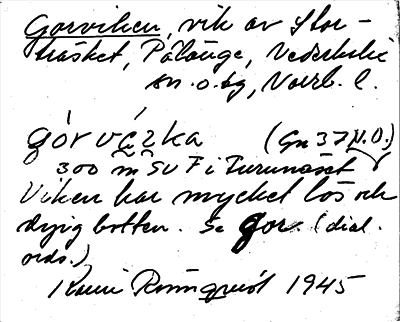 Gorviken, vik av Stor-
träsket, Pålänge, Nederkalix
sn. o. tg, Norrb. l.
górvą́ʒka (Gn 37 N.O.)
300 m SV F i Furunäset
Viken har mycket lös och
dyig botten. Se gor. (dial.
ords.)
Runi Rönnquist 1945